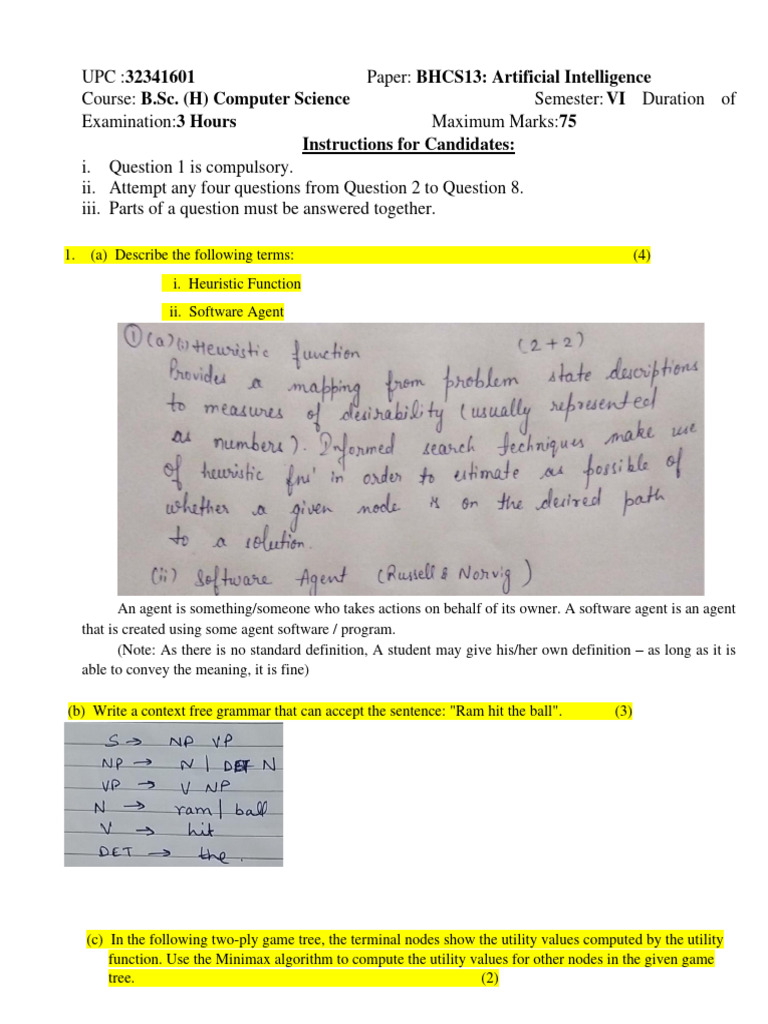 UPC :32341601 Paper: BHCS13: Artificial Intelligence
Course: B.Sc. (H) Computer Science Semester: VI Duration of
Examination:3 Hours Maximum Marks:75
Instructions for Candidates:
i. Question 1 is compulsory.
ii. Attempt any four questions from Question 2 to Question 8.
iii. Parts of a question must be answered together.
1. (a) Describe the following terms: (4)
i. Heuristic Function
ii. Software Agent
①(a)(i) Heuristic function (2+2)
Provides a mapping from problem state descriptions
to measures of desirability (usually represented
as numbers). Informed search techniques make use
of heuristic fns' in order to estimate as possible of
whether a given node is on the desired path
to a solution.
(ii) Software Agent (Russell & Norvig)
An agent is something/someone who takes actions on behalf of its owner. A software agent is an agent
that is created using some agent software / program.
(Note: As there is no standard definition, A student may give his/her own definition – as long as it is
able to convey the meaning, it is fine)
(b) Write a context free grammar that can accept the sentence: "Ram hit the ball". (3)
S → NP VP
NP → N | DET N
VP → V NP
N → ram | ball
V → hit
DET → the.
(c) In the following two-ply game tree, the terminal nodes show the utility values computed by the utility
function. Use the Minimax algorithm to compute the utility values for other nodes in the given game
tree. (2)